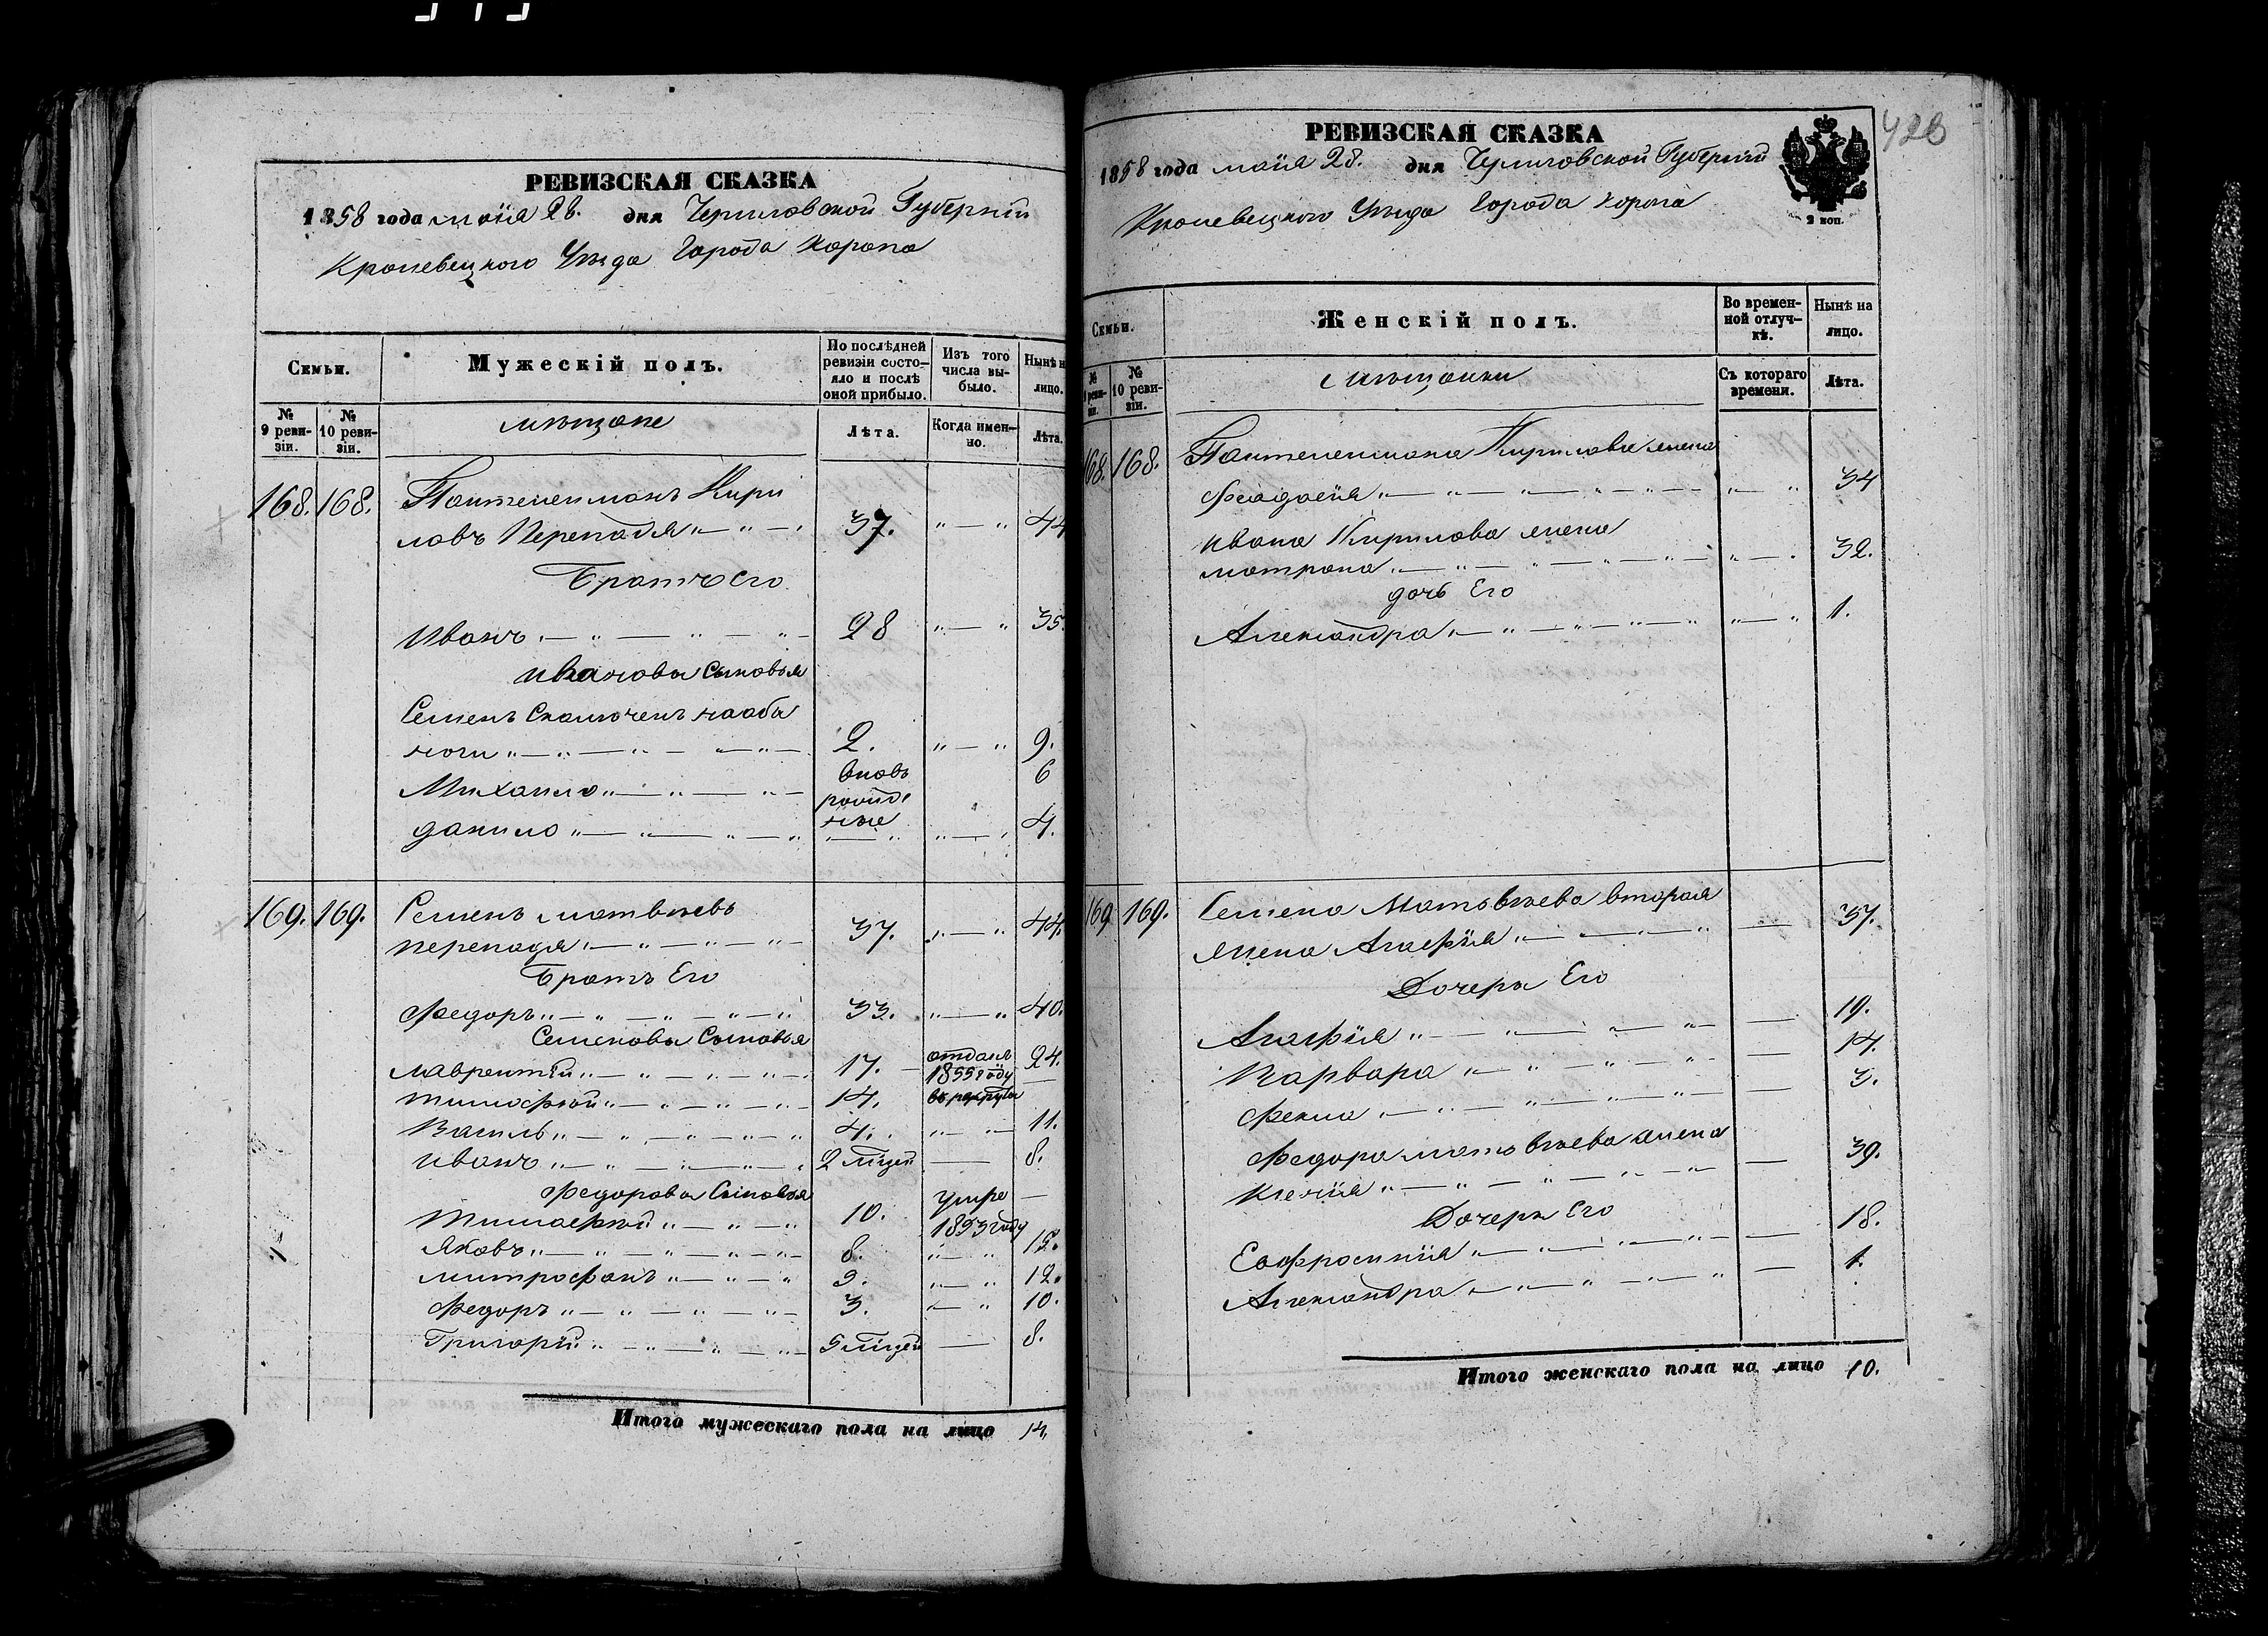 РЕВИЗСКАЯ СКАЗКА
1858 года маія 28. дня Черниговской Губерніи
Кролевецкого Уѣзда Города Коропа
Семьи.
Мужескій полъ.
По послѣдней ревизіи состояло и послѣ оной прибыло.
Изъ того числа выбыло.
Нынѣ н
лицо.
№ 9 ревизіи.
№ 10 ревизіи.
мѣщане
Лѣта.
Когда именно.
Лѣта.
168. 168. Пантелеимонъ Кири
ловъ Перепадя 37. 44
Братъ Его
Иванъ 28 35.
Ивановы Сыновья
Семенъ
ноги 2. 9.
Михаило вновь 6
рожде
Данило ные 4.
169. 169. Семенъ Матвѣевъ
Перепадя 37. 44.
Братъ Его
Федоръ 33. 40.
Семеновы Сыновья
Лаврентій 17. 24.
Тимофѣй 14. отданъ 1855 году в рекруты
Василь 4. 11.
Иванъ 2 мѣсяц 8.
Федоровы Сыновья
Тимофѣй 10. умре 1853 году
Яковъ 8. 15.
Митрофанъ 5. 12.
Федоръ 3. 10.
Григорій 5 мѣсяц 8.
Итого мужескаго пола на лицо 14.
428
РЕВИЗСКАЯ СКАЗКА
1858 года маія 28. дня Черниговской Губерніи
Кролевецкого Уѣзда Города Коропа
2 коп.
Семьи.
Женскій полъ.
Во временной отлучкѣ.
Нынѣ на лицо.
№ реви-
№ 10 ревизіи.
мѣщанки
Съ котораго времени.
Лѣта.
168. 168. Пантелеимона Кирилова жена
Феодосія 34
Ивана Кирилова жена
Матрона 32.
дочь Его
Александра 1.
169 169. Семена Матвѣева вторая
жена Агафія 37.
Дочери Его
Агафія 19.
Варвара 14.
Фекла 3.
Федора Матвѣева жена
Ксенія 39.
Дочери Его
Евфросинія 18.
Александра 1.
Итого женскаго пола на лицо 10.